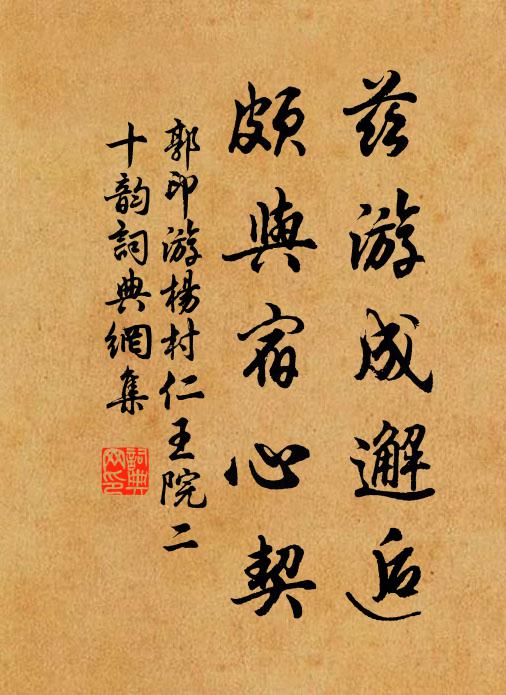 茲游成邂逅
頗與宿心契
郭印游楊村仁王院二
十韵詞典網集
詞典網印